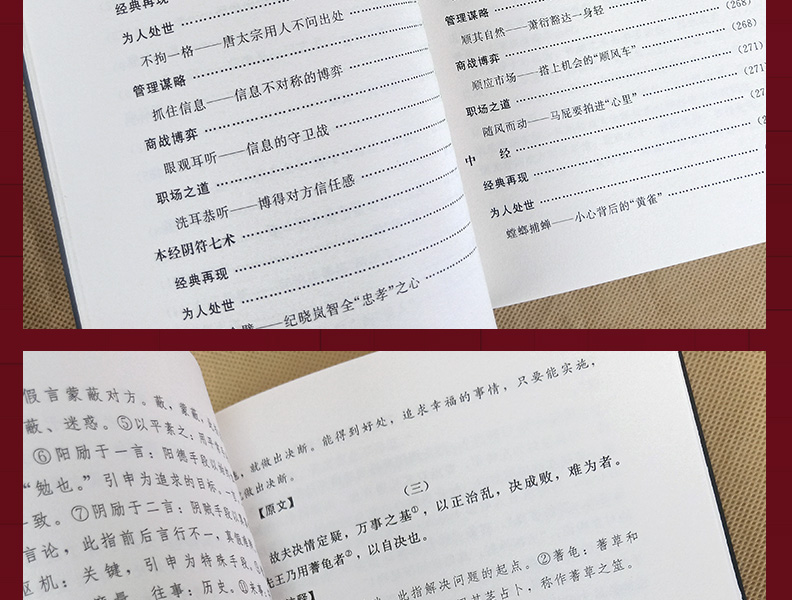 经典再现
为人处世
不拘一格——唐太宗用人不问出处
管理谋略
抓住信息——信息不对称的博弈
商战博弈
眼观耳听——信息的守卫战
职场之道
洗耳恭听——博得对方信任感
本经阴符七术
经典再现
为人处世
——纪晓岚智全“忠孝”之心
(268)
管理谋略
顺其自然——萧衍豁达一身轻
(268)
商战博弈
顺应市场——搭上机会的“顺风车”
(271)
职场之道
(271)
随风而动——马屁要拍进“心里”
中 经
经典再现
为人处世
螳螂捕蝉——小心背后的“黄雀”
假言蒙蔽对方。蔽，蒙蔽
蔽、迷惑。⑤以平素之：用平
⑥阳励于一言：阳德手段以
“勉也。”引申为追求的目标。一
一致。⑦阴励于二言：阴贼手段以
言论，此指前后言行不一，真假
枢机：关键，引申为特殊手段。
往事：历史。①
，就做出决断。能得到好处，追求幸福的事情，只要能实施，
做出决断。
【原文】
（三）
故夫决情定疑，万事之基①，以正治乱，决成败，难为者。
先王乃用蓍龟者②，以自决也。
此指解决问题的起点。②蓍龟：蓍草和
占卜，称作蓍草之筮。